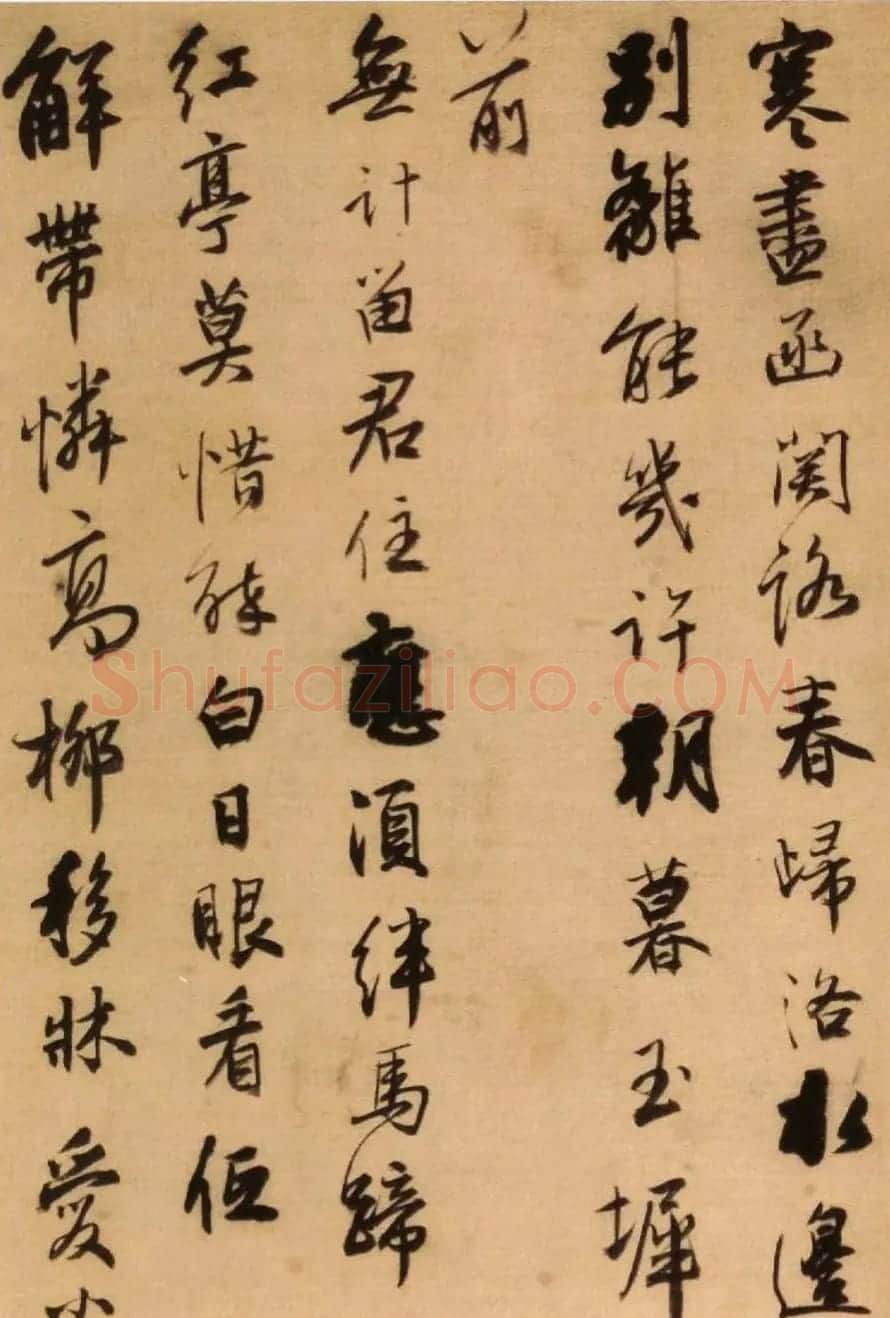 寒盡函関路春歸洛水邊
別離能幾許朝暮玉墀
前
無計留君住應須絆馬蹄
紅亭莫惜醉白日眼看低
解帶憐髙柳移牀愛
Shufaziliao.COM